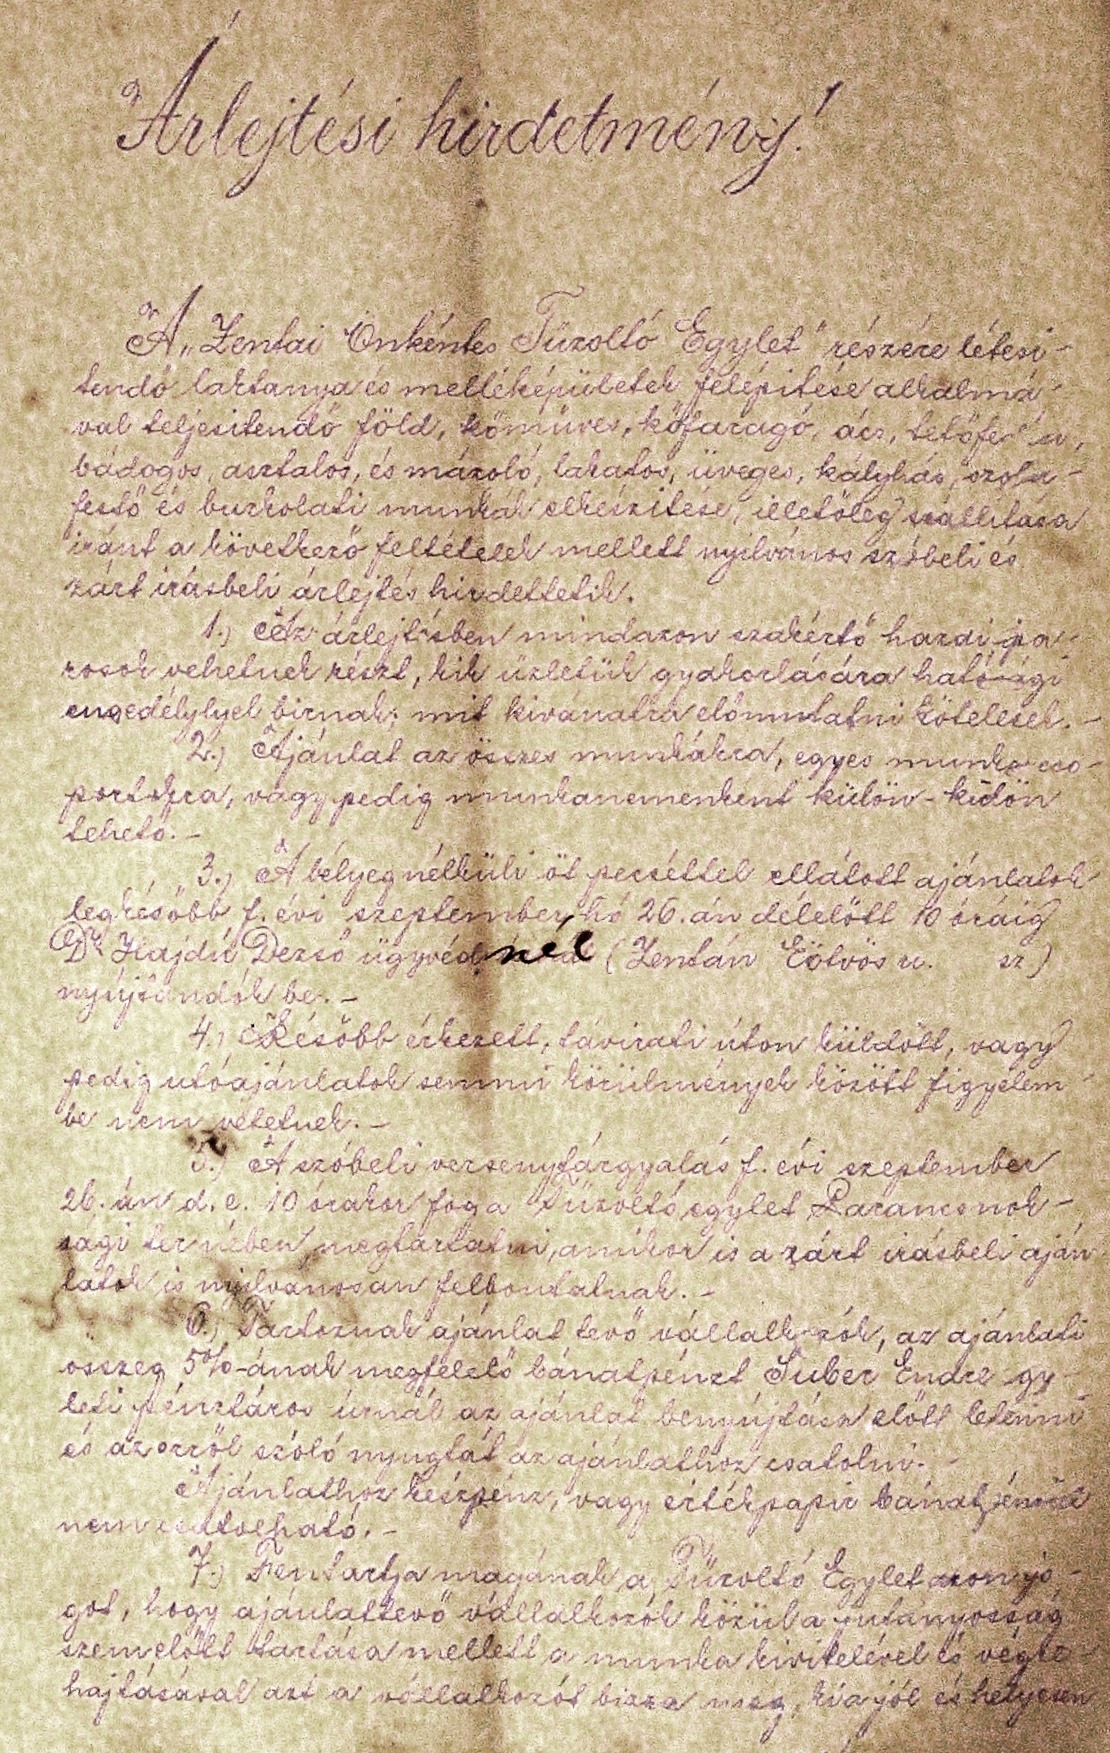 Árlejtési hirdetmény!
A „Zentai Önkéntes Tűzoltó Egylet" részére létesi-
tendő laktanya és melléképületek felépitése alkalmá-
val teljesitendő föld, kőműves, kőfaragó, ács, tetőfedő,
bádogos, asztalos, és mázoló, lakatos, üveges, kályhás, szoba-
festő és burkolati munkák elkészitése, illetőleg szállitása
iránt a következő feltételek mellett nyilvános szóbeli és
zárt irásbeli árlejtés hirdettetik.
1.) Az árlejtésben mindazon szakértő hazai ipa-
rosok vehetnek részt, kik üzletük gyakorlására hatósági
engedélylyel birnak; mit kivánatra előmutatni kötelesek. -
2.) Ajánlat az összes munkákra, egyes munka cso-
portokra, vagy pedig munkanemenként külön-külön
tehető. -
3.) A bélyegnélküli öt pecséttel ellátott ajánlatok
legkésőbb f. évi szeptember hó 26.án délelőtt 10 óráig
Dr Hajdú Dezső ügyvédnél (Zentán Eötvös u. sz)
nyújtandók be. -
4.) Később érkezett, távirati úton küldött, vagy
pedig utóajánlatok semmi körülmények között figyelem-
be nem vétetnek. -
5.) A szóbeli versenytárgyalás f. évi szeptember
26.án d. e. 10 órakor fog a Tűzoltó egylet Parancsnok-
sági termében megtartatni, amikor is a zárt irásbeli aján
latok is nyilvánosan felbontatnak. -
6.) Tartoznak ajánlat tevő vállalkozók, az ajánlati
összeg 5%-ának megfelelő bánatpénzt Suber Endre egy-
leti pénztáros úrnál az ajánlat benyújtása előtt letenni
és az erről szóló nyugtát az ajánlathoz csatolni. -
Ajánlathoz készpénz, vagy értékpapir bánatpénzül
nem csatolható. -
7.) Fentartja magának a Tűzoltó Egylet azon jo-
got, hogy ajánlattevő vállalkozók közül a jutányosság
szemelőtt tartása mellett a munka kivitelével és végre-
hajtásával azt a vállalkozót bizza meg, ki a jól és helyesen